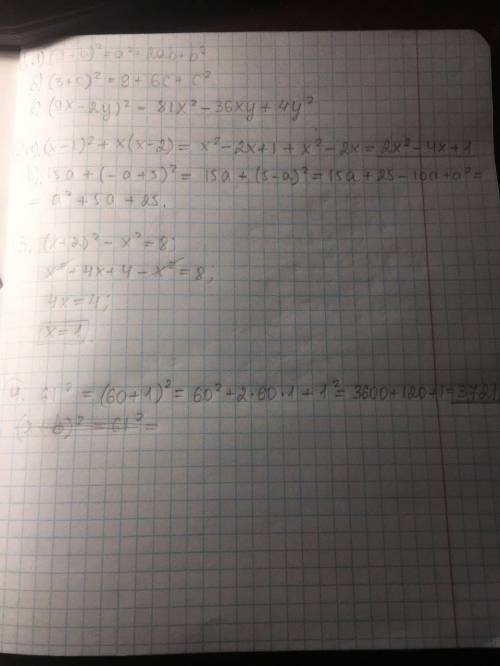 (a-b)²=a²-2ab+b²
б) (3+c)²=9+6c+c²
в) (9x-2y)²=81x²-36xy+4y²
(x-1)²+x(x-2)=x²-2x+1+x²-2x=2x²-4x+1
15a+(-a+5)²=15a+(5-a)²=15a+25-10a+a²=
=a²+5a+25.
3. (x+2)²-x²=8;
x²+4x+4-x²=8;
4x=4;
x=1.
4. 61²=(60+1)²=60²+2·60·1+1²=3600+120+1=3721
)²=61²=